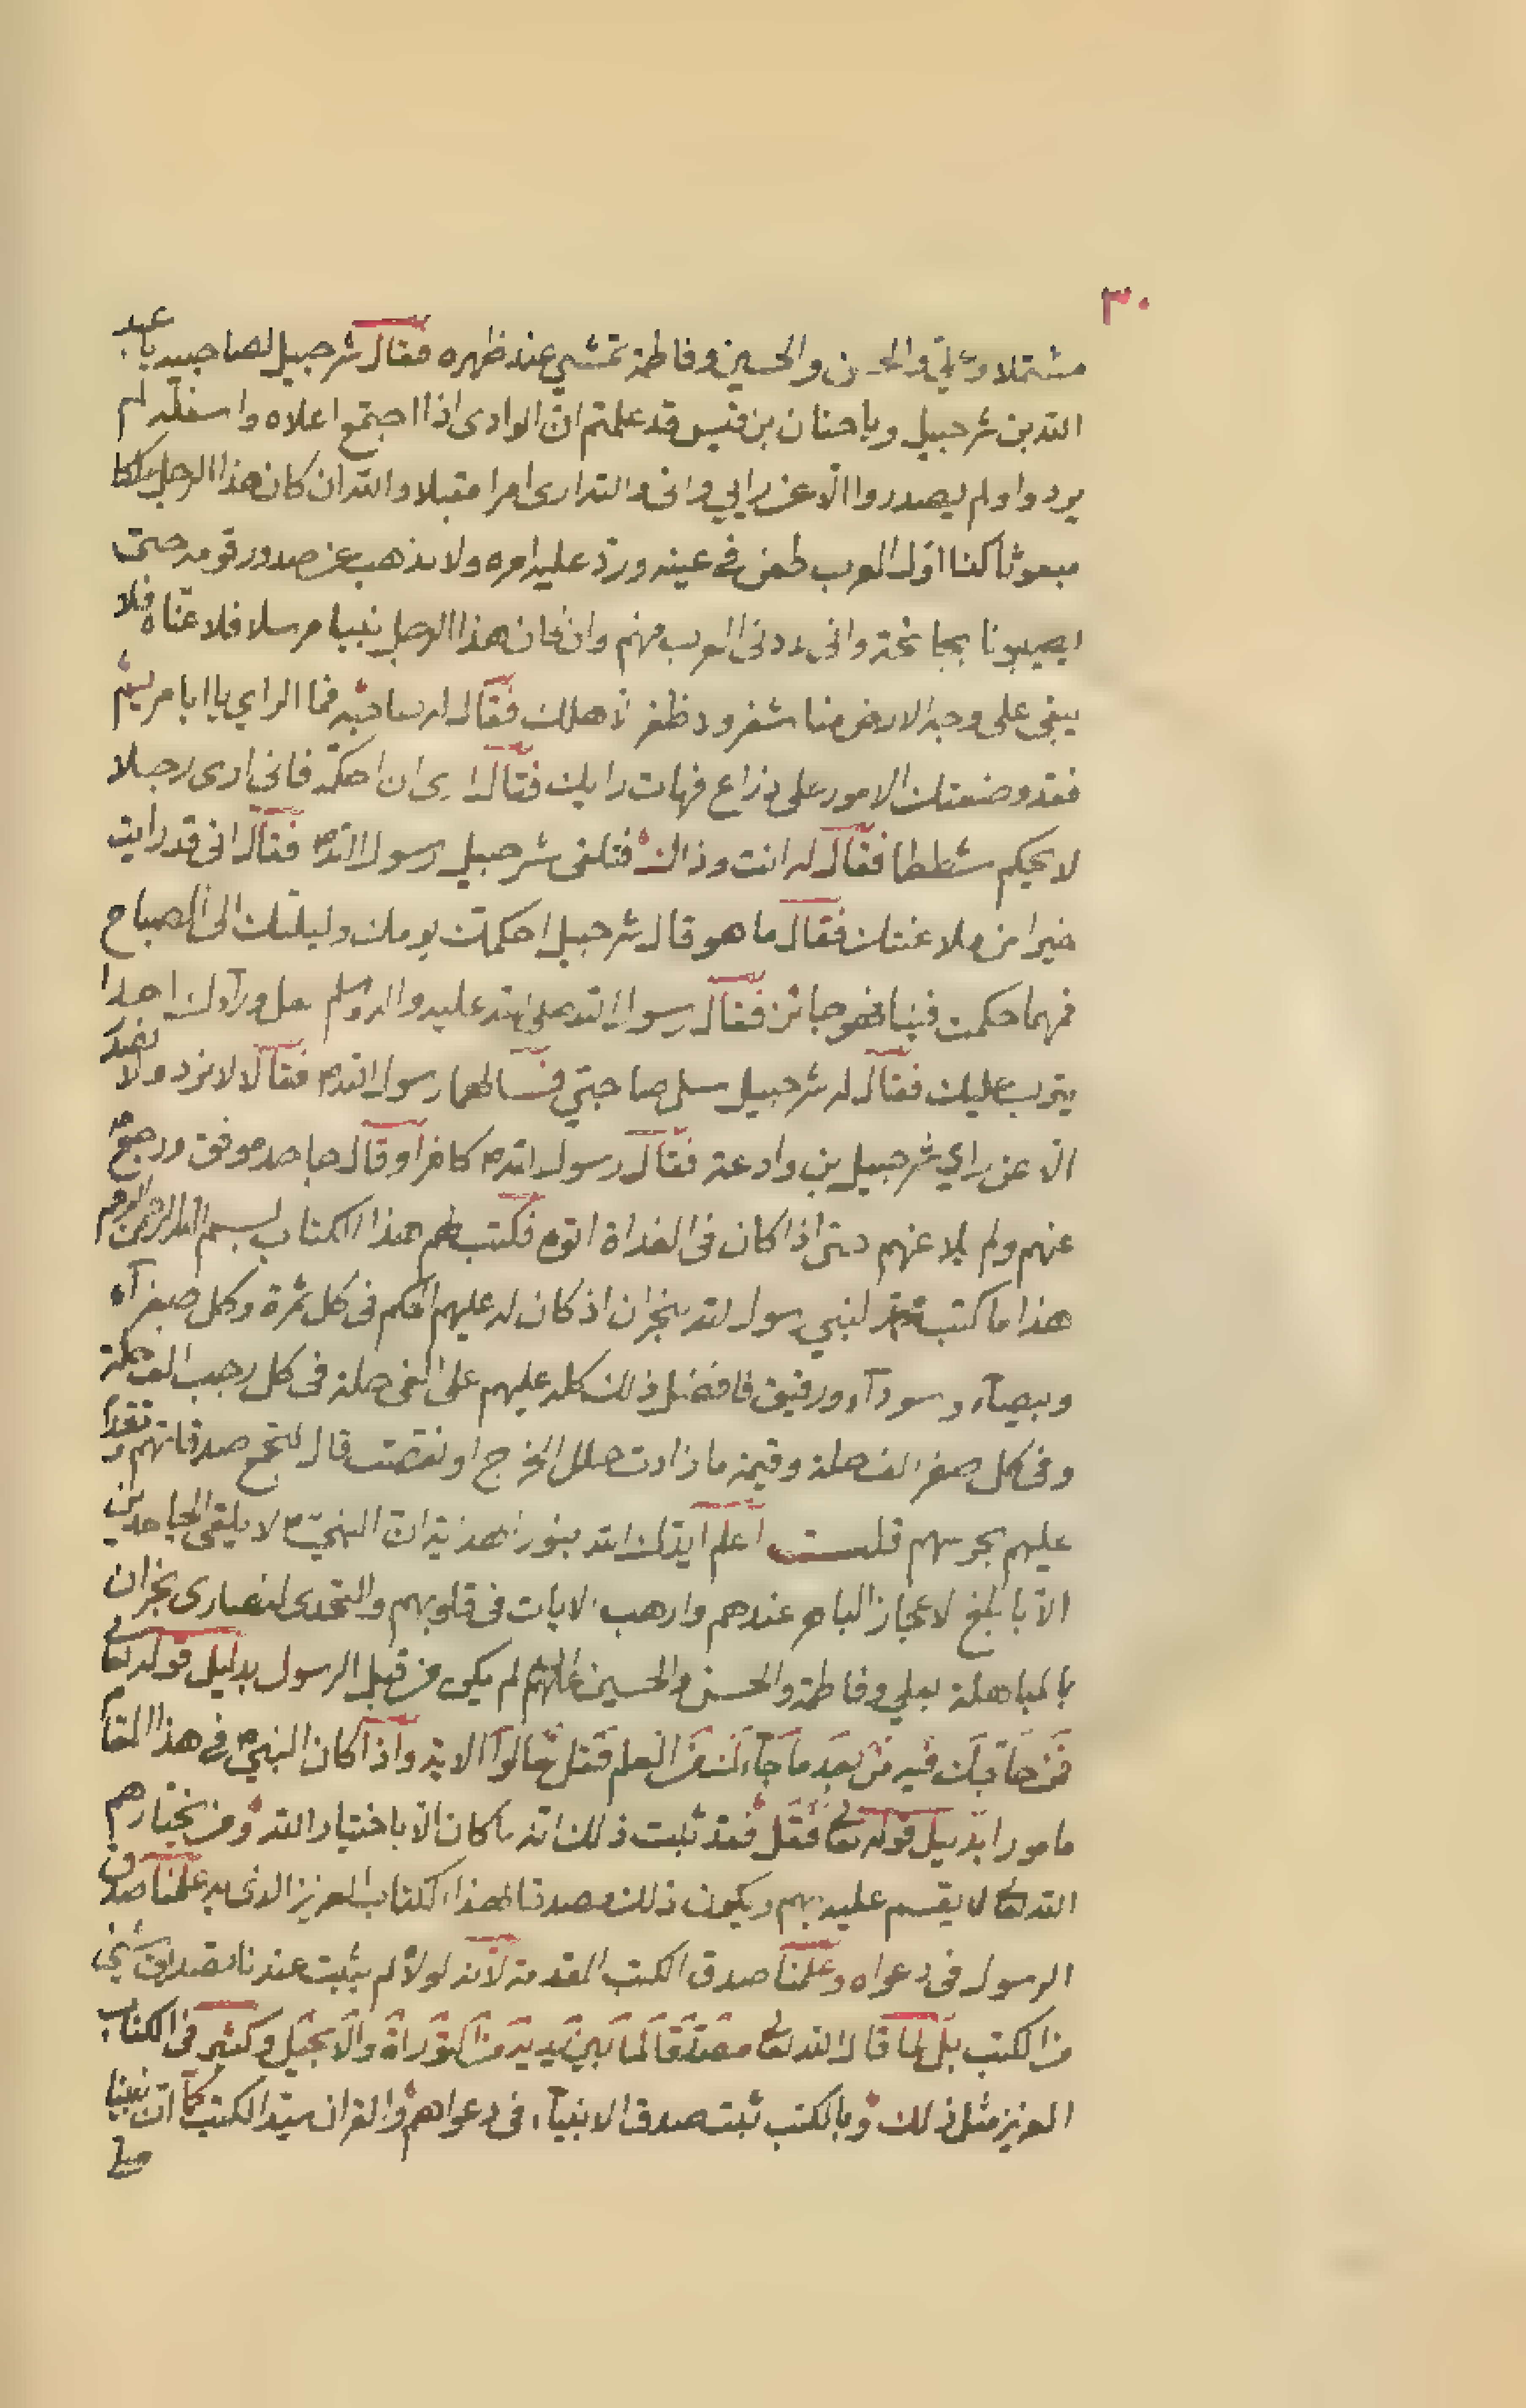 ٣٠
مشتملا وعلي والحسن والحسين وفاطمة تمشي عند ظهره فقال شرحبيل لصاحبيه يا عبد
الله بن شرحبيل ويا حنان بن قيس قد علمتم ان الوادى اذا اجتمع اعلاه واسفله لم
يردوا ولم يصدروا الا عن رايي وانى والله ارى امرا مقبلا والله ان كان هذا الرجل ملكا
مبعوثا كنا اول العرب طعن في عينه ورد عليه امره ولا يذهب عن صدور قومه حتى
يصيبونا بجائحة وانى ادنى العرب منهم وان كان هذا الرجل نبيا مرسلا فلاعناه فلا
يبقى على وجه الارض منا شعر ولا ظفر الا هلك فقال له صاحبه فما الراي يا ابا مريم
فقد وضعتك الامور على ذراع فهات رايك فقال ارى ان احكمه فانى ارى رجلا
لا يحكم شططا فقال له انت وذاك فتلقى شرحبيل رسول الله فقال انى قد رايت
خيرا من ملاعنتك فقال ما هو قال شرحبيل احكمك يومك وليلتك الى الصباح
فمهما حكمت فينا فهو جائز فقال رسول الله صلى الله عليه واله وسلم لعل وراءك احدا
يثرب عليك فقال له شرحبيل سل صاحبي فسالهما رسول الله فقالا لا نرد ولا نصدر
الا عن راي شرحبيل بن وادعة فقال رسول الله كافرا وقال جاحد موفق ورجع
عنهم ولم يلاعنهم حتى اذا كان فى الغداة اتوه فكتب لهم هذا الكتاب بسم الله الرحمن الرحيم
هذا ما كتب محمد النبي رسول الله بنجران اذ كان له عليهم الحكم فى كل ثمرة وكل صفرآء
وبيضآء وسودآء ورقيق فافضل ذلك كله عليهم على الفى حلة فى كل رجب الف حلة
وفى كل صفر الف حلة وقيمة ما زادت حلل الخرج او نقصت قال لتجمع صدقاتهم و
عليهم بجرمهم قلت اعلم ايدك الله بنور الهداية ان النبي لا يلقى الجاحدين
الا بابلغ الاعجاز الباهر عندهم وارهب الايات فى قلوبهم والتحدى لنصارى نجران
بالمباهلة بعلي وفاطمة والحسن والحسين عليهم لم يكن من قبل الرسول بدليل قوله تعا
فمن حآجك فيه من بعد ما جآءك من العلم فقل تعالوا الاية واذا كان النبي في هذا المقام
مامورا بدليل قوله تعالى فقل فقد ثبت ذلك انه ما كان الا باختيار الله ومن يختارهم
الله تعالى لا يقسم عليه بهم ويكون ذلك مصدقا لهذا الكتاب العزيز الذى به علمنا صدق
الرسول فى دعواه وعلمنا صدق الكتب المقدمة لانه لولاه لم يثبت عندنا تصديق شئ
من الكتب بل لما قال الله تعالى مصدقا لما بين يديه من التوراة والانجيل وكثير فى الكتاب
العزيز مثل ذلك وبالكتب ثبت صدق الانبيآء فى دعواهم والقران سيد الكتب كما ان نبينا